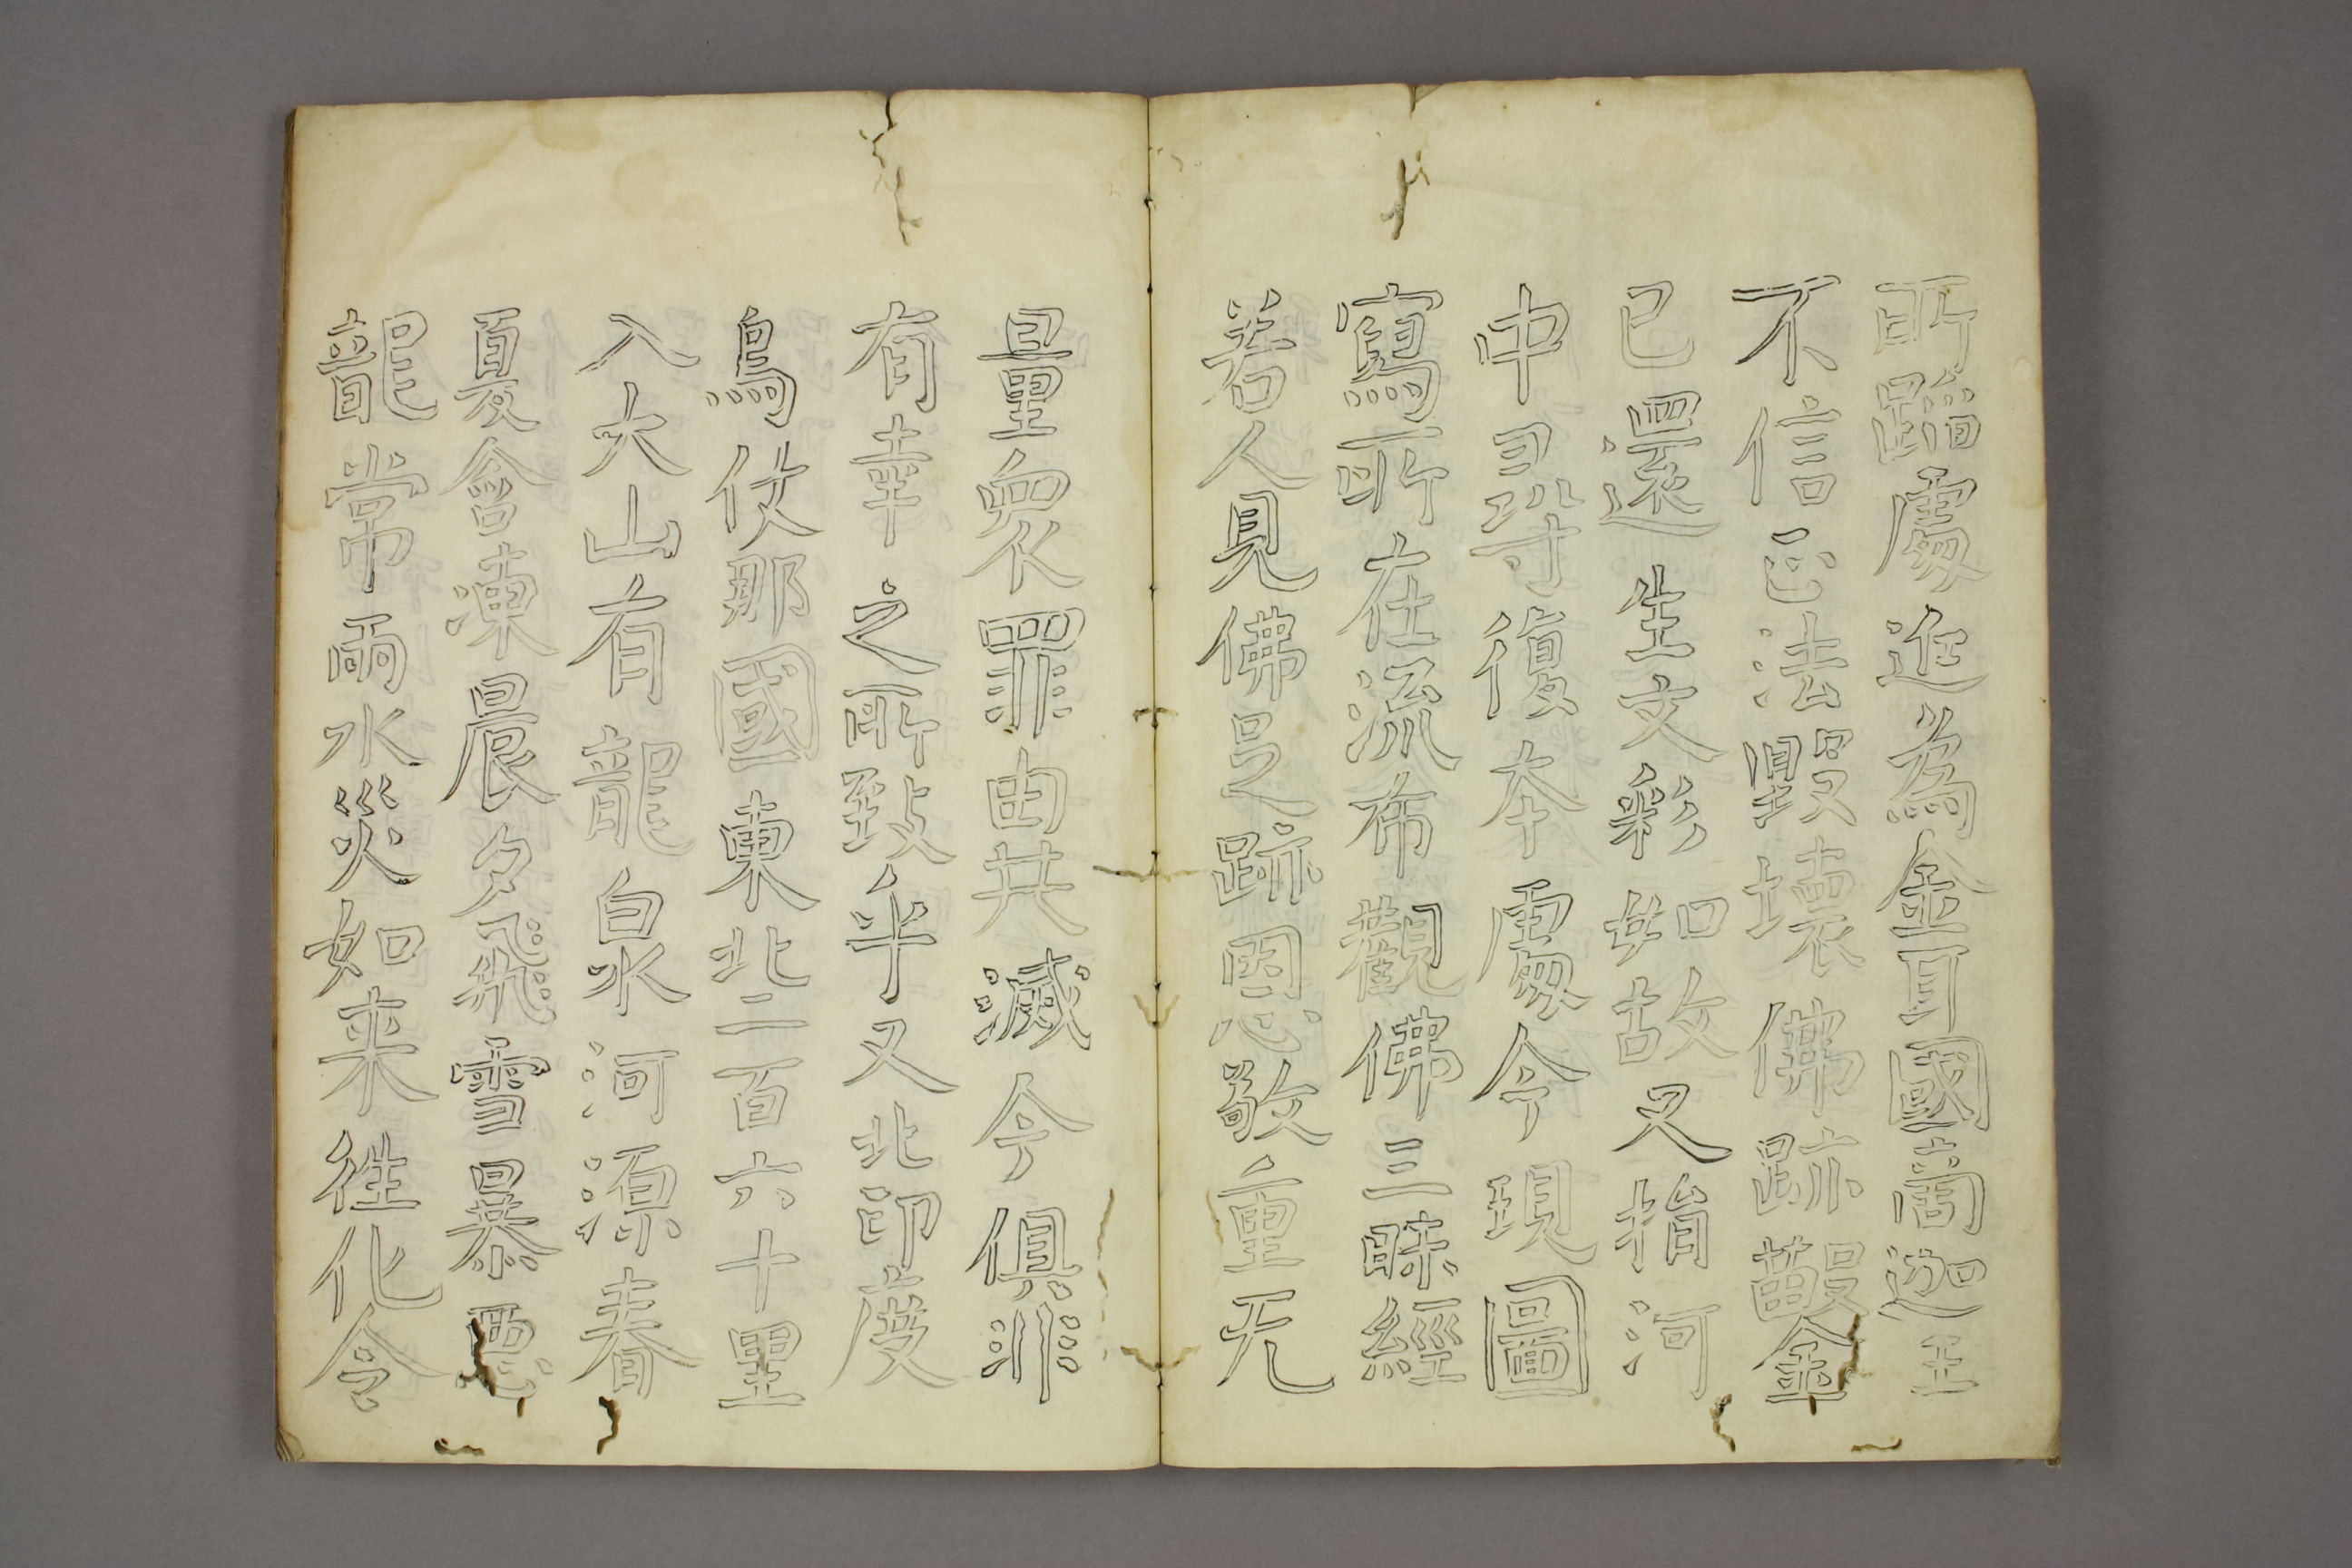 所蹈處近為金耳國啇迦王
不信正法毀壞佛跡鑿
已還生文彩如故又捐河
中尋復本處今現圖
寫所在流布觀佛三昧經
若人見佛足跡內心敬重无
量衆罪由共滅今俱非
有幸之所致乎又北印度
烏仗那國東北二百六十里
入大山有龍泉河源春
夏含凍晨夕飛雪暴惡
龍常雨水災如来往化令